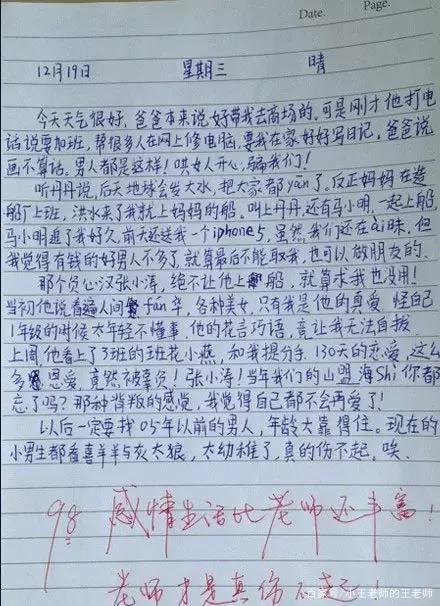 Date.
Page.
12月19日 星期三 晴
今天天气很好,爸爸本来说好带我去商场的,可是刚才他打电
话说要加班,帮很多人在网上修电脑,要我在家好好写日记,爸爸说
画不算话。男人都是这样!哄女人开心,骗我们!
听丹丹说,后天地球会发大水,把大家都yān了。反正妈妈在造
船厂上班,洪水来了我就上妈妈的船。叫上丹丹,还有马小明,一起上船,
马小明追了我好久,前天还送我一个iphone5,虽然我们还在ai昧,但
我觉得有钱的好男人不多了,就算最后不能取我,也可以做朋友的。
那个负心汉张小涛,绝不让他上船,就算求我也没用!
当初他说看遍人间fán华,各种美女,只有我是他的真爱,怪自己
1年级的时候太年轻不懂事,他的花言巧语,竟让我无法自拔
上周他看上了3班的班花小燕,和我提分手,130天的恋爱,这么
多恩爱,竟然被辜负!张小涛!当年我们的山盟海Shi你都
忘了吗?那种背叛的感觉,我觉得自己都不会再爱了!
以后一定要找05年以前的男人,年龄大靠得住。现在的
小男生都看喜羊羊与灰太狼,太幼稚了,真的伤不起,唉.
98 感情生活比老师还丰富!
老师才是真伤不起!
百家号/小王老师的王老师